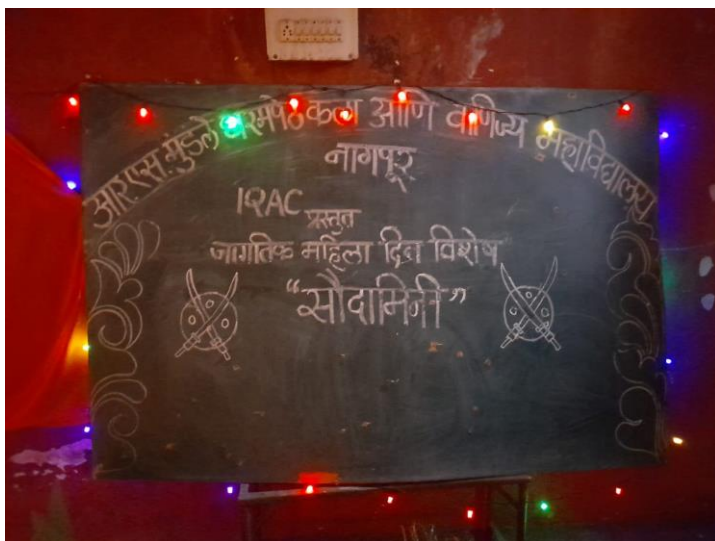 आर.एस. मुंडले धरमपेठ कला आणि वाणिज्य महाविद्यालय
नागपूर
IQAC
प्रस्तुत
जागतिक महिला दिन विशेष
"सौदामिनी"